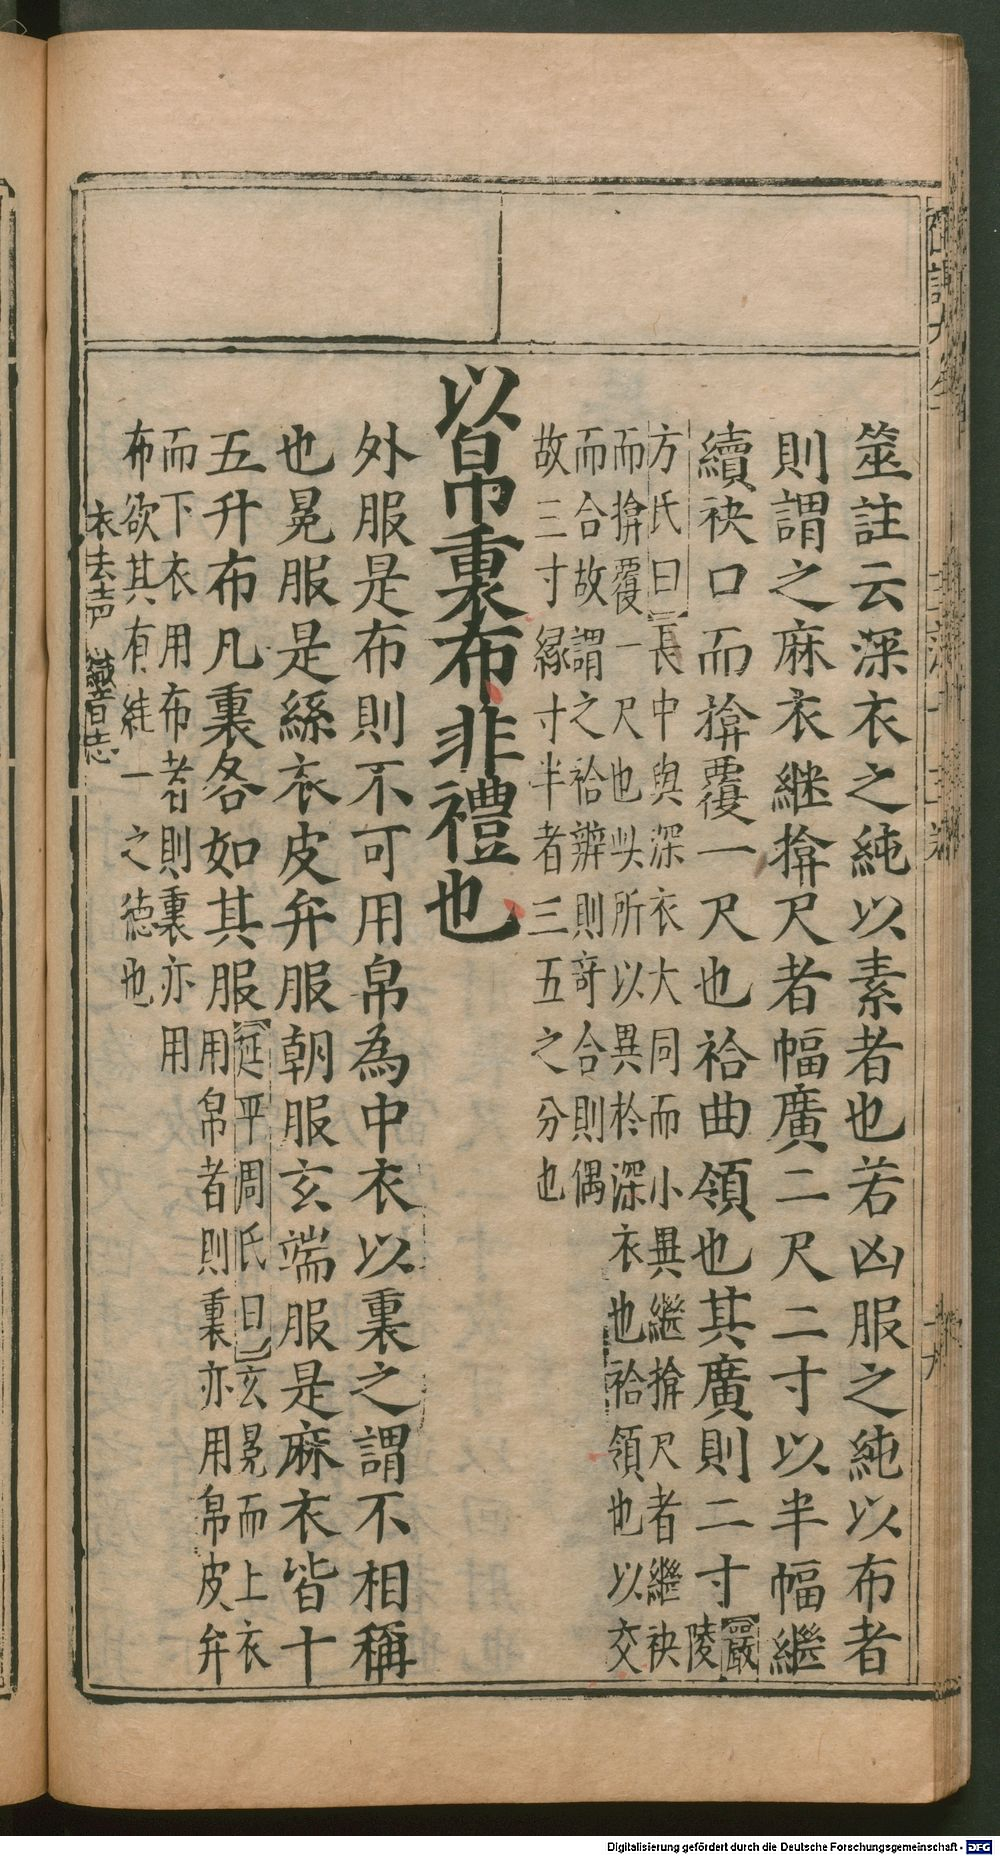 筮註云深衣之純以素者也若凶服之純以布者
則謂之麻衣継揜尺者幅廣二尺二寸以半幅繼
續袂口而揜覆一尺也袷曲領也其廣則二寸嚴
陵
方氏曰長中與深衣大同而小異繼揜尺者繼袂
而揜覆一尺也此所以異於深衣也袷領也以交
而合故謂之袷辨則竒合則偶
故三寸緣寸半者三五之分也
以帛裏布非禮也
外服是布則不可用帛為中衣以裏之謂不相稱
也冕服是絲衣皮弁服朝服玄端服是麻衣皆十
五升布凡裏各如其服
延平周氏曰玄冕而上衣
用帛者則裏亦用帛皮弁
而下衣用布者則裏亦用
布欲其有絓一之德也
衣去声 織音志
Digitalisierung gefördert durch die Deutsche Forschungsgemeinschaft - DFG